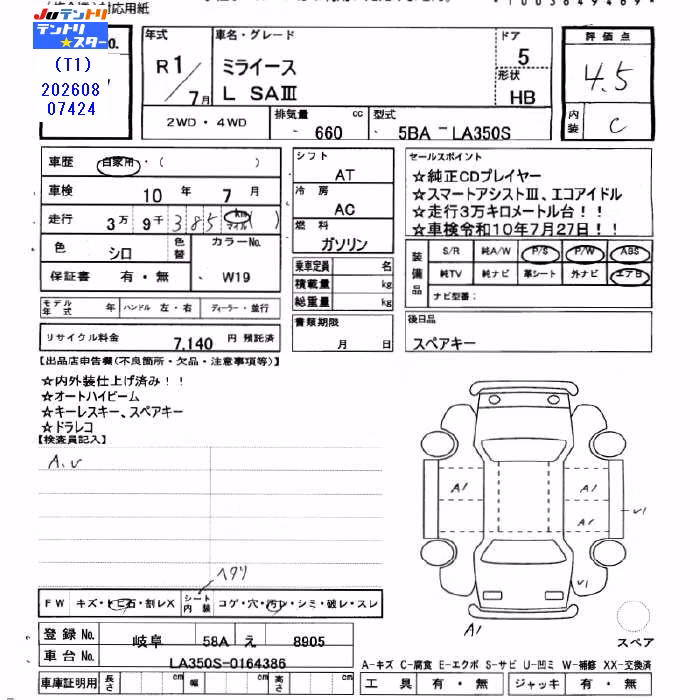 対応用紙
JUテントリ
テントリ★スター
(T1)
202608
07424
No.
年式
R1/7月
車名・グレード
ミライース
L SAⅢ
ドア
5
形状
HB
評価点
4.5
内装
C
2WD・4WD
排気量
660 cc
型式
5BA - LA350S
車歴
自家用・( )
車検
10年 7月
走行
3万 9千 385 km マイル ( )
色
シロ
色替
カラーNo.
W19
保証書
有・無
シフト
AT
冷房
AC
燃料
ガソリン
乗車定員 名
積載量 kg
総重量 kg
セールスポイント
☆純正CDプレイヤー
☆スマートアシストⅢ、エコアイドル
☆走行3万キロメートル台!!
☆車検令和10年7月27日!!
装備品
S/R 純A/W P/S P/W ABS
純TV 純ナビ 革シート 外ナビ エアB
ナビ型番:
モデル年式 年 ハンドル 左・右 ディーラー・並行
リサイクル料金 7,140 円 預託済
書類期限
月 日
後日品
スペアキー
【出品店申告欄(不良箇所・欠品・注意事項等)】
☆内外装仕上げ済み!!
☆オートハイビーム
☆キーレスキー、スペアキー
☆ドラレコ
【検査員記入】
A.U
A1 A1
A1
U1
U1
A1
スペア
ヘタリ
FW キズ・トビ石・割レX シート内装 コゲ・穴・汚レ・シミ・破レ・スレ
登録No. 岐阜 58A え 8905
車台No. LA350S-0164386
車庫証明用 長さ cm 幅 cm 高さ cm
A-キズ C-腐食 E-エクボ S-サビ U-凹ミ W-補修 XX-交換済
工具 有・無 ジャッキ 有・無